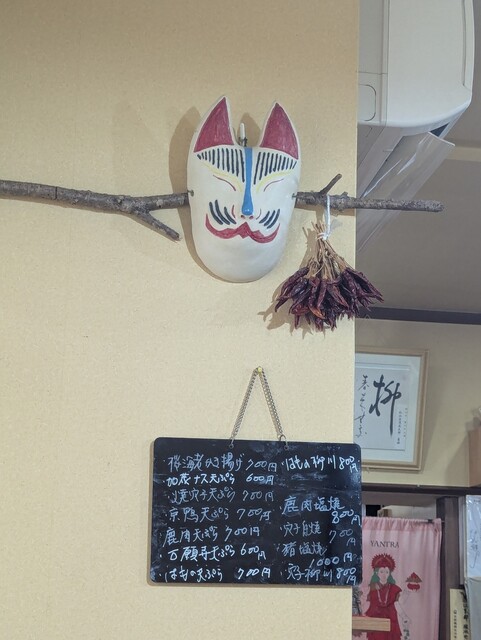 桜海老かき揚げ 700円
加茂ナス天ぷら 600円
焼穴子天ぷら 700円
京鴨天ぷら 700円
鹿肉天ぷら 700円
万願寺天ぷら 600円
はもの天ぷら 700円
はもの柳川 800円
鹿肉塩焼 800円
穴子白焼 700円
猪塩焼 1000円
穴子柳川 800円
柳
YANTRA